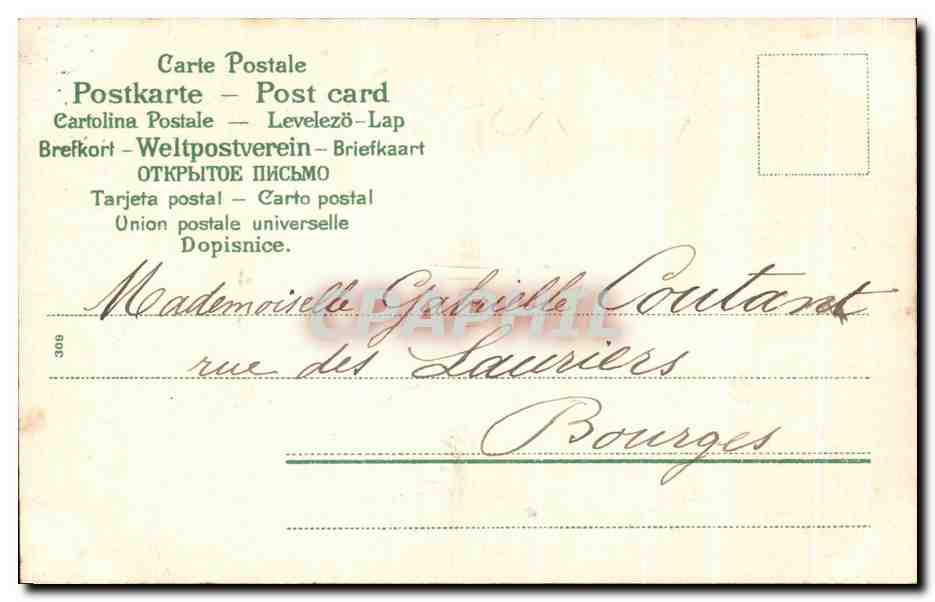 Carte Postale
Postkarte – Post card
Cartolina Postale — Levelezö-Lap
Brefkort – Weltpostverein – Briefkaart
ОТКРЫТОЕ ПИСЬМО
Tarjeta postal – Carto postal
Union postale universelle
Dopisnice.
Mademoiselle Gabrielle Coutant
CPAPHIL
309
rue des Lauriers
Bourges